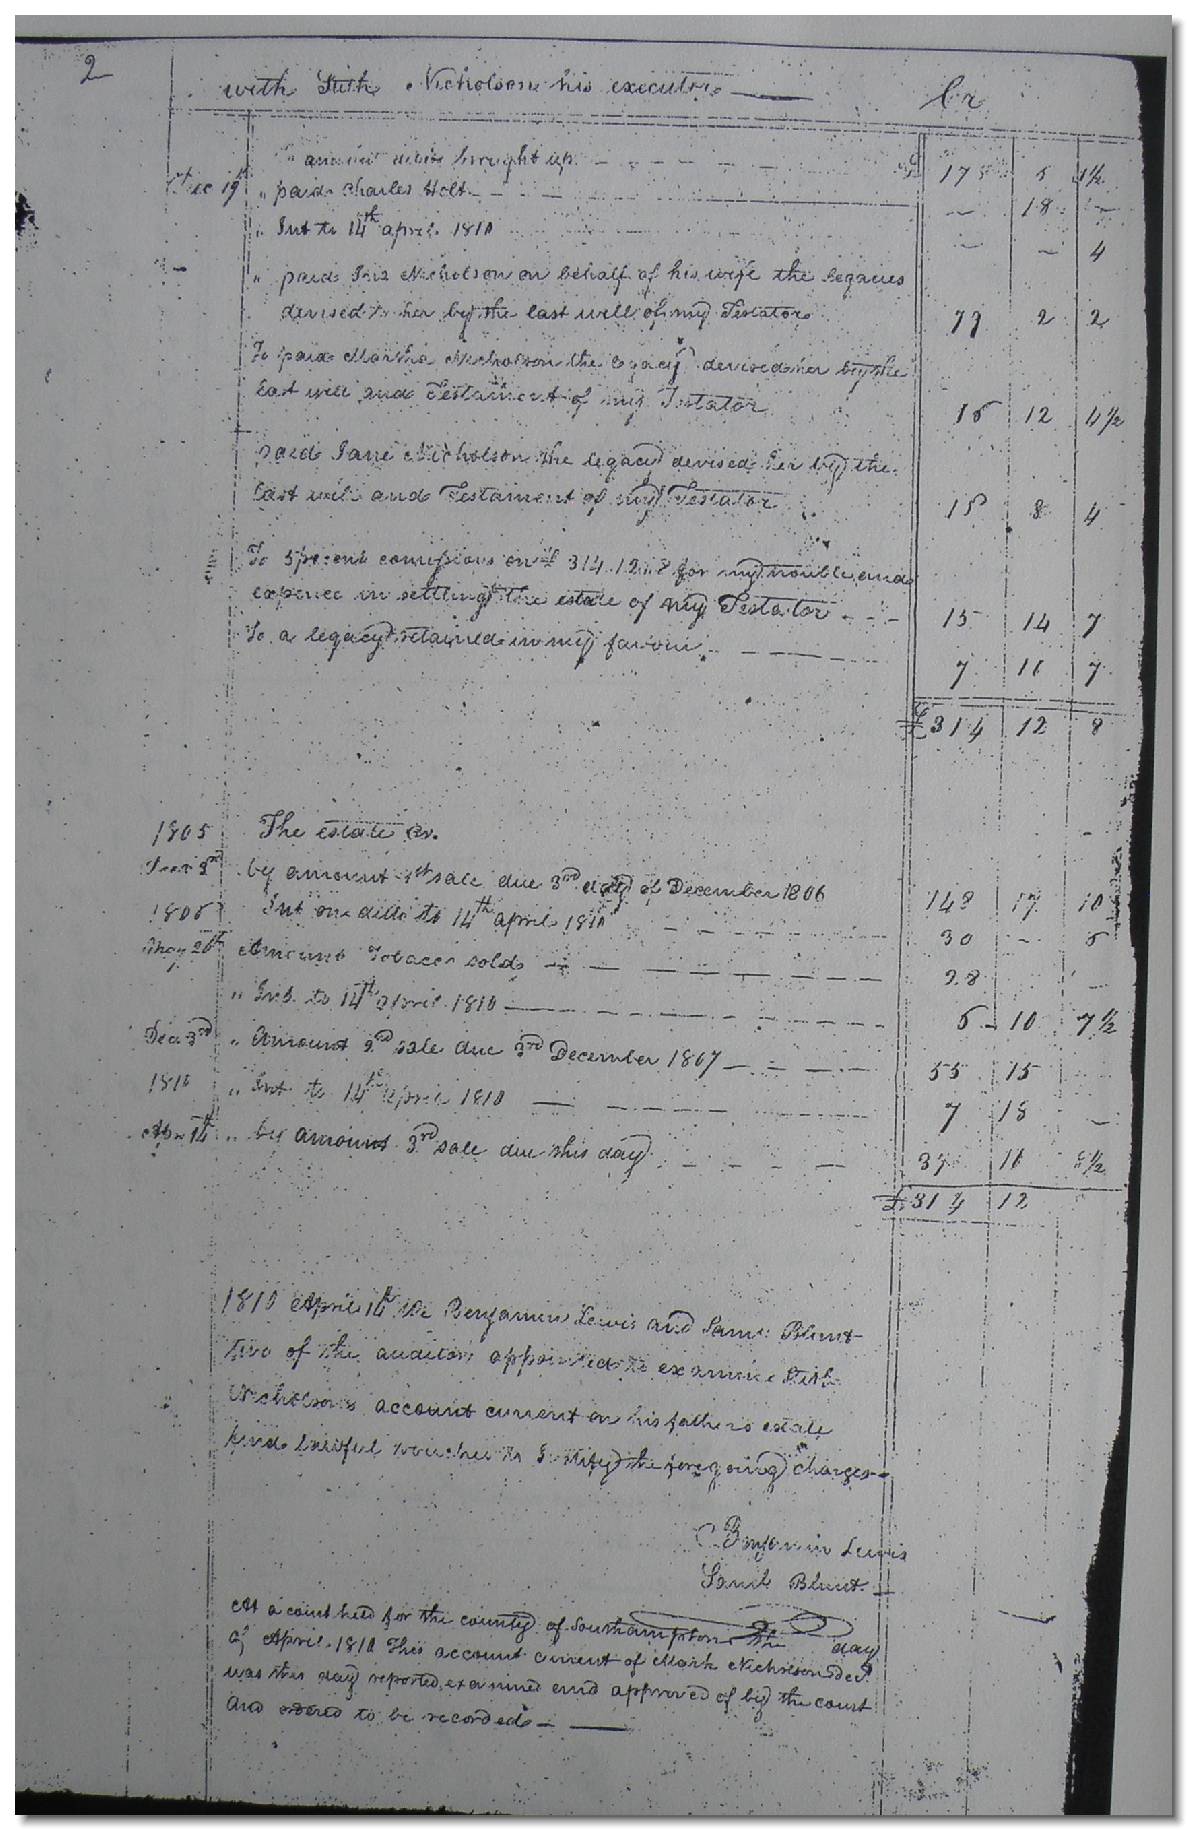 2
with Stith Nicholson his executor Cr
" amount debits brought up £ 178 5 1½
Dec 19th " paid Charles Holt — 18 —
" Int to 14th april 1810 — — 4
" paid Nicholson on behalf of his wife the legacies
devised to her by the last will of my Testator 79 2 2
To paid Martha Nicholson the legacy devised her by the
last will and Testament of my Testator 15 12 4½
paid Jane Nicholson the legacy devised her by the
last will and Testament of my Testator 15 8 4
To 5 pr cent comissions on £ 314.12.8 for my trouble and
expence in settling the estate of my Testator 15 14 7
To a legacy retained in my favour 7 11 7
£ 314 12 8
1805 The estate Cr.
3rd by amount 1st sale due 3rd day of December 1806 148 17 10
1806 Int on ditto to 14th april 1810 30 — 6
May 20th Amount Tobacco sold 28 —
" Int. to 14th april 1810 6 10 7½
Dec 3rd " Amount 2nd sale due 3rd December 1807 55 15
1810 " Int to 14th april 1810 7 18 —
Apr 14th " by amount 3rd sale due this day 37 11 8½
£ 314 12
1810 April 14th We Benjamin Lewis and Saml Blunt
two of the auditors appointed to examine Stith
Nicholson's account current on his fathers estate
find lawful vouchers to Justify the foregoing charges
Benjamin Lewis
Saml Blunt
At a court held for the county of Southampton the day
of April 1810 This account current of Mark Nicholson decd
was this day reported, examined and approved of by the court
and ordered to be recorded